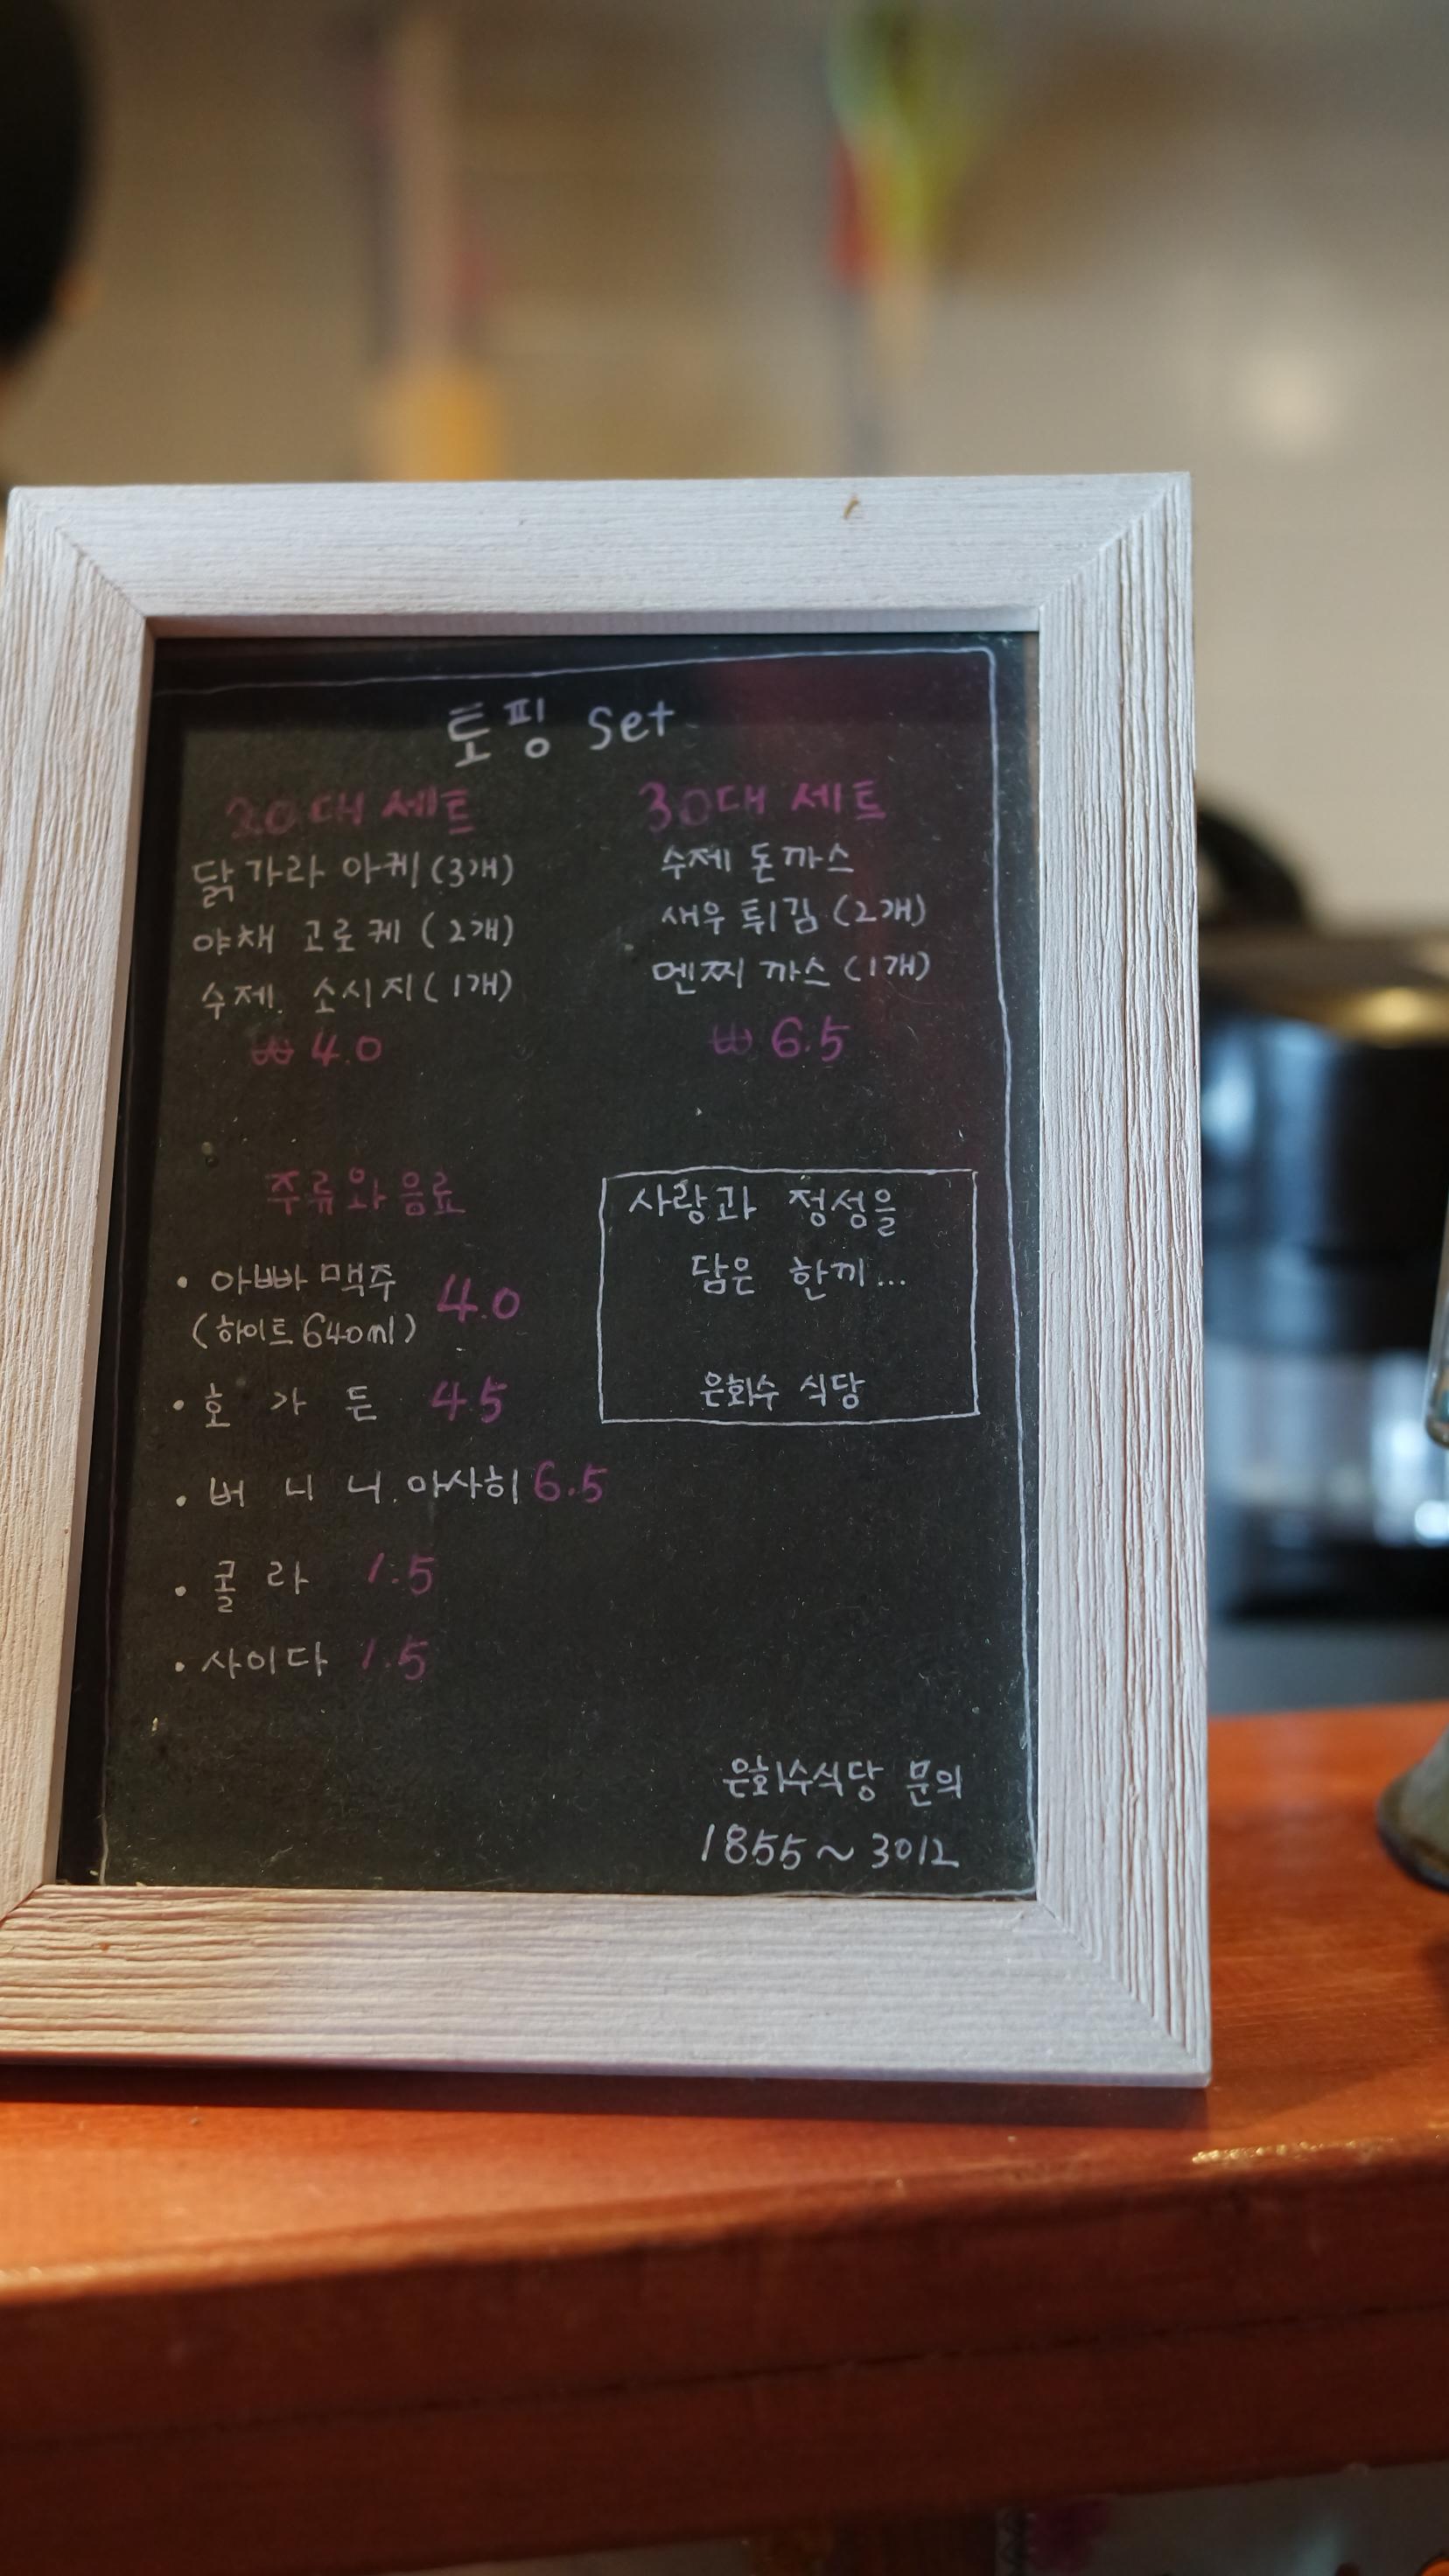 토핑 set
20대 세트
닭가라 아케 (3개)
야채 고로케 (2개)
수제 소시지 (1개)
₩ 4.0
30대 세트
수제 돈까스
새우 튀김 (2개)
멘찌 까스 (1개)
₩ 6.5
주류와 음료
• 아빠 맥주 4.0
(하이트 640ml)
• 호가든 4.5
• 버니니. 아사히 6.5
• 콜라 1.5
• 사이다 1.5
사랑과 정성을
담은 한끼...
은화수 식당
은화수식당 문의
1855~3012